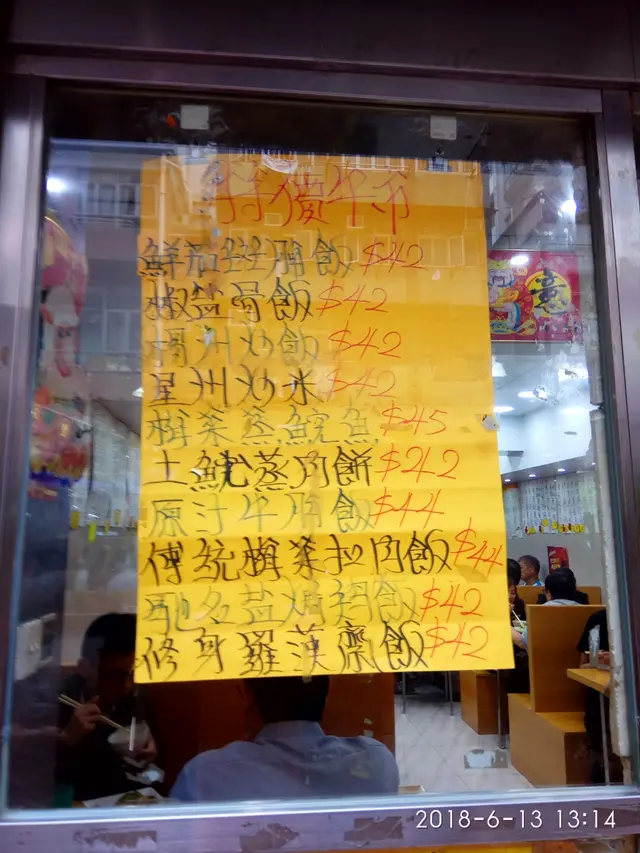 特價午市
鮮茄斑腩飯 $42
椒盐骨飯 $42
楊州炒飯 $42
星州炒米 $42
梅菜蒸鯇魚 $45
土魷蒸肉餅 $42
原汁牛腩飯 $44
傳統梅菜扣肉飯 $44
馳名盐焗飯 $42
修身羅漢齋飯 $42
意
2018-6-13 13:14